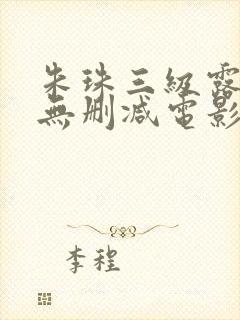 朱珠三級露
無刪減電影
李程